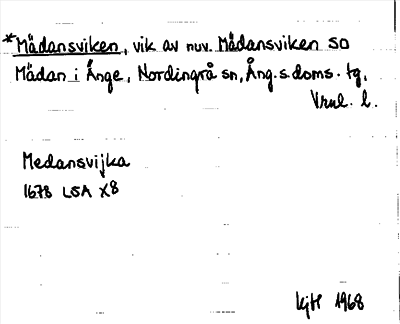 *Mädansviken, vik av nuv. Mädansviken SO
Mädan i Änge, Nordingrå sn, Ång.s.doms. tg,
Vrnl. l.
Medansvijka
1678 LSA X8
KjH 1968